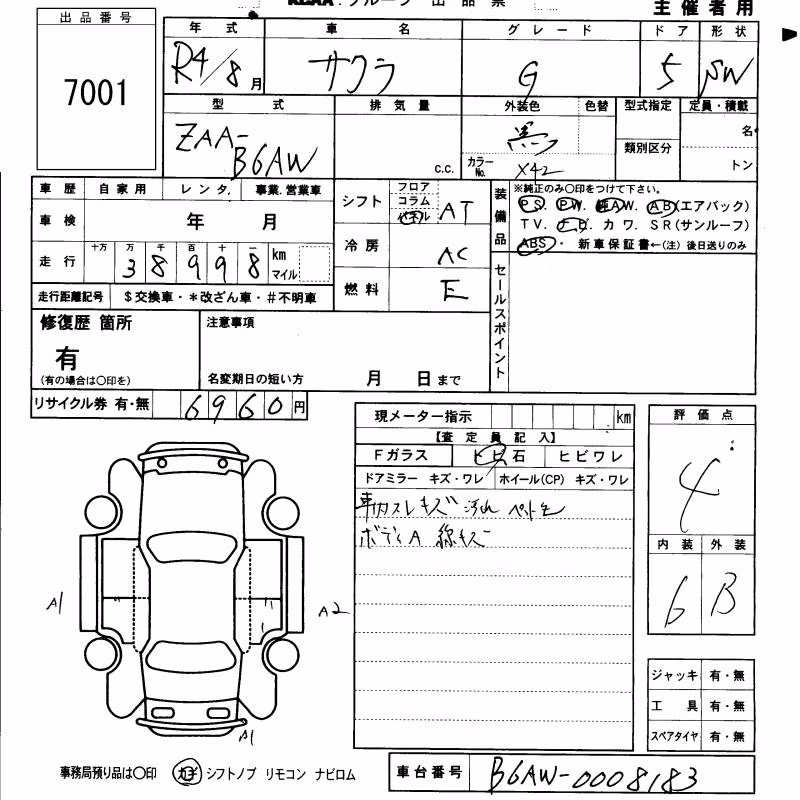 出品票
主催者用
出品番号
7001
年式 車名 グレード ドア 形状
R4/8月 サクラ G 5 SW
型式 排気量 外装色 色替 型式指定 定員・積載
ZAA-B6AW c.c. 黒 名
カラーNo. X42 類別区分 トン
車歴 自家用 レンタ. 事業.営業車
車検 年 月
走行 十万 万 千 百 十 一 km マイル
38998
走行距離記号 $交換車・*改ざん車・#不明車
シフト フロア コラム パネル AT
冷房 AC
燃料 E
装備品
※純正のみ〇印をつけて下さい。
PS. PW. 純AW. AB(エアバック)
TV. ナビ・カワ. SR(サンルーフ)
ABS・ 新車保証書←(注) 後日送りのみ
セールスポイント
修復歴 箇所
有
(有の場合は〇印を)
注意事項
名変期日の短い方 月 日まで
リサイクル券 有・無 6960円
現メーター指示 km
【査定員記入】
Fガラス ヒビ石 ヒビワレ
ドアミラー キズ・ワレ ホイール(CP) キズ・ワレ
車内スレキズ 汚れ
ボディA 線キズ
評価点
4
内装 外装
6 B
A1
A2
A1
ジャッキ 有・無
工具 有・無
スペアタイヤ 有・無
事務局預り品は〇印 カギ シフトノブ リモコン ナビロム
車台番号 B6AW-0008183